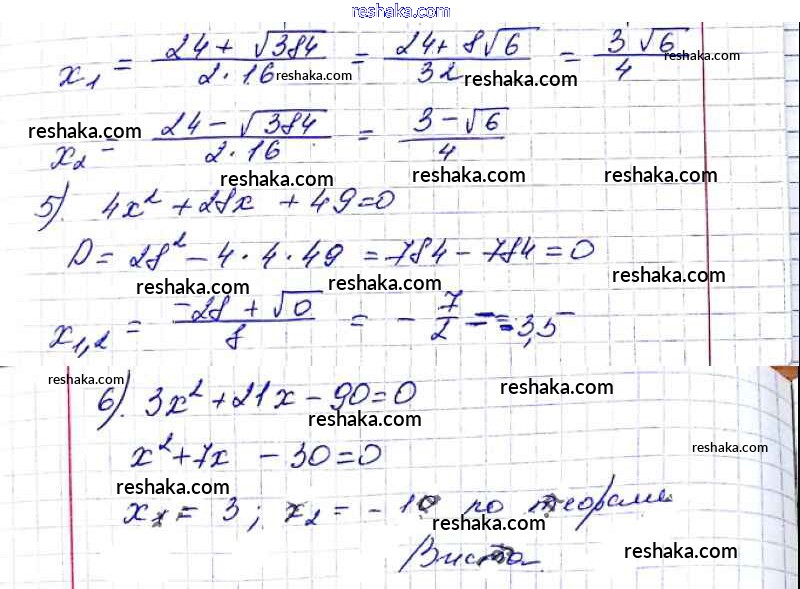 reshaka.com
x₁ = (24 + √384)/(2·16) = (24 + 8√6)/32 = 3 √6/4
reshaka.com reshaka.com reshaka.com
x₂ = (24 − √384)/(2·16) = (3 − √6)/4
reshaka.com
reshaka.com reshaka.com reshaka.com
5). 4x² + 28x + 49 = 0
D = 28² − 4·4·49 = 784 − 784 = 0
reshaka.com reshaka.com reshaka.com
x₁,₂ = (−28 + √0)/8 = − 7/2 = −3,5
reshaka.com reshaka.com
6). 3x² + 21x − 90 = 0
reshaka.com
x² + 7x − 30 = 0
reshaka.com
reshaka.com
x₁ = 3; x₂ = −10 по теореме
reshaka.com
Виета
reshaka.com